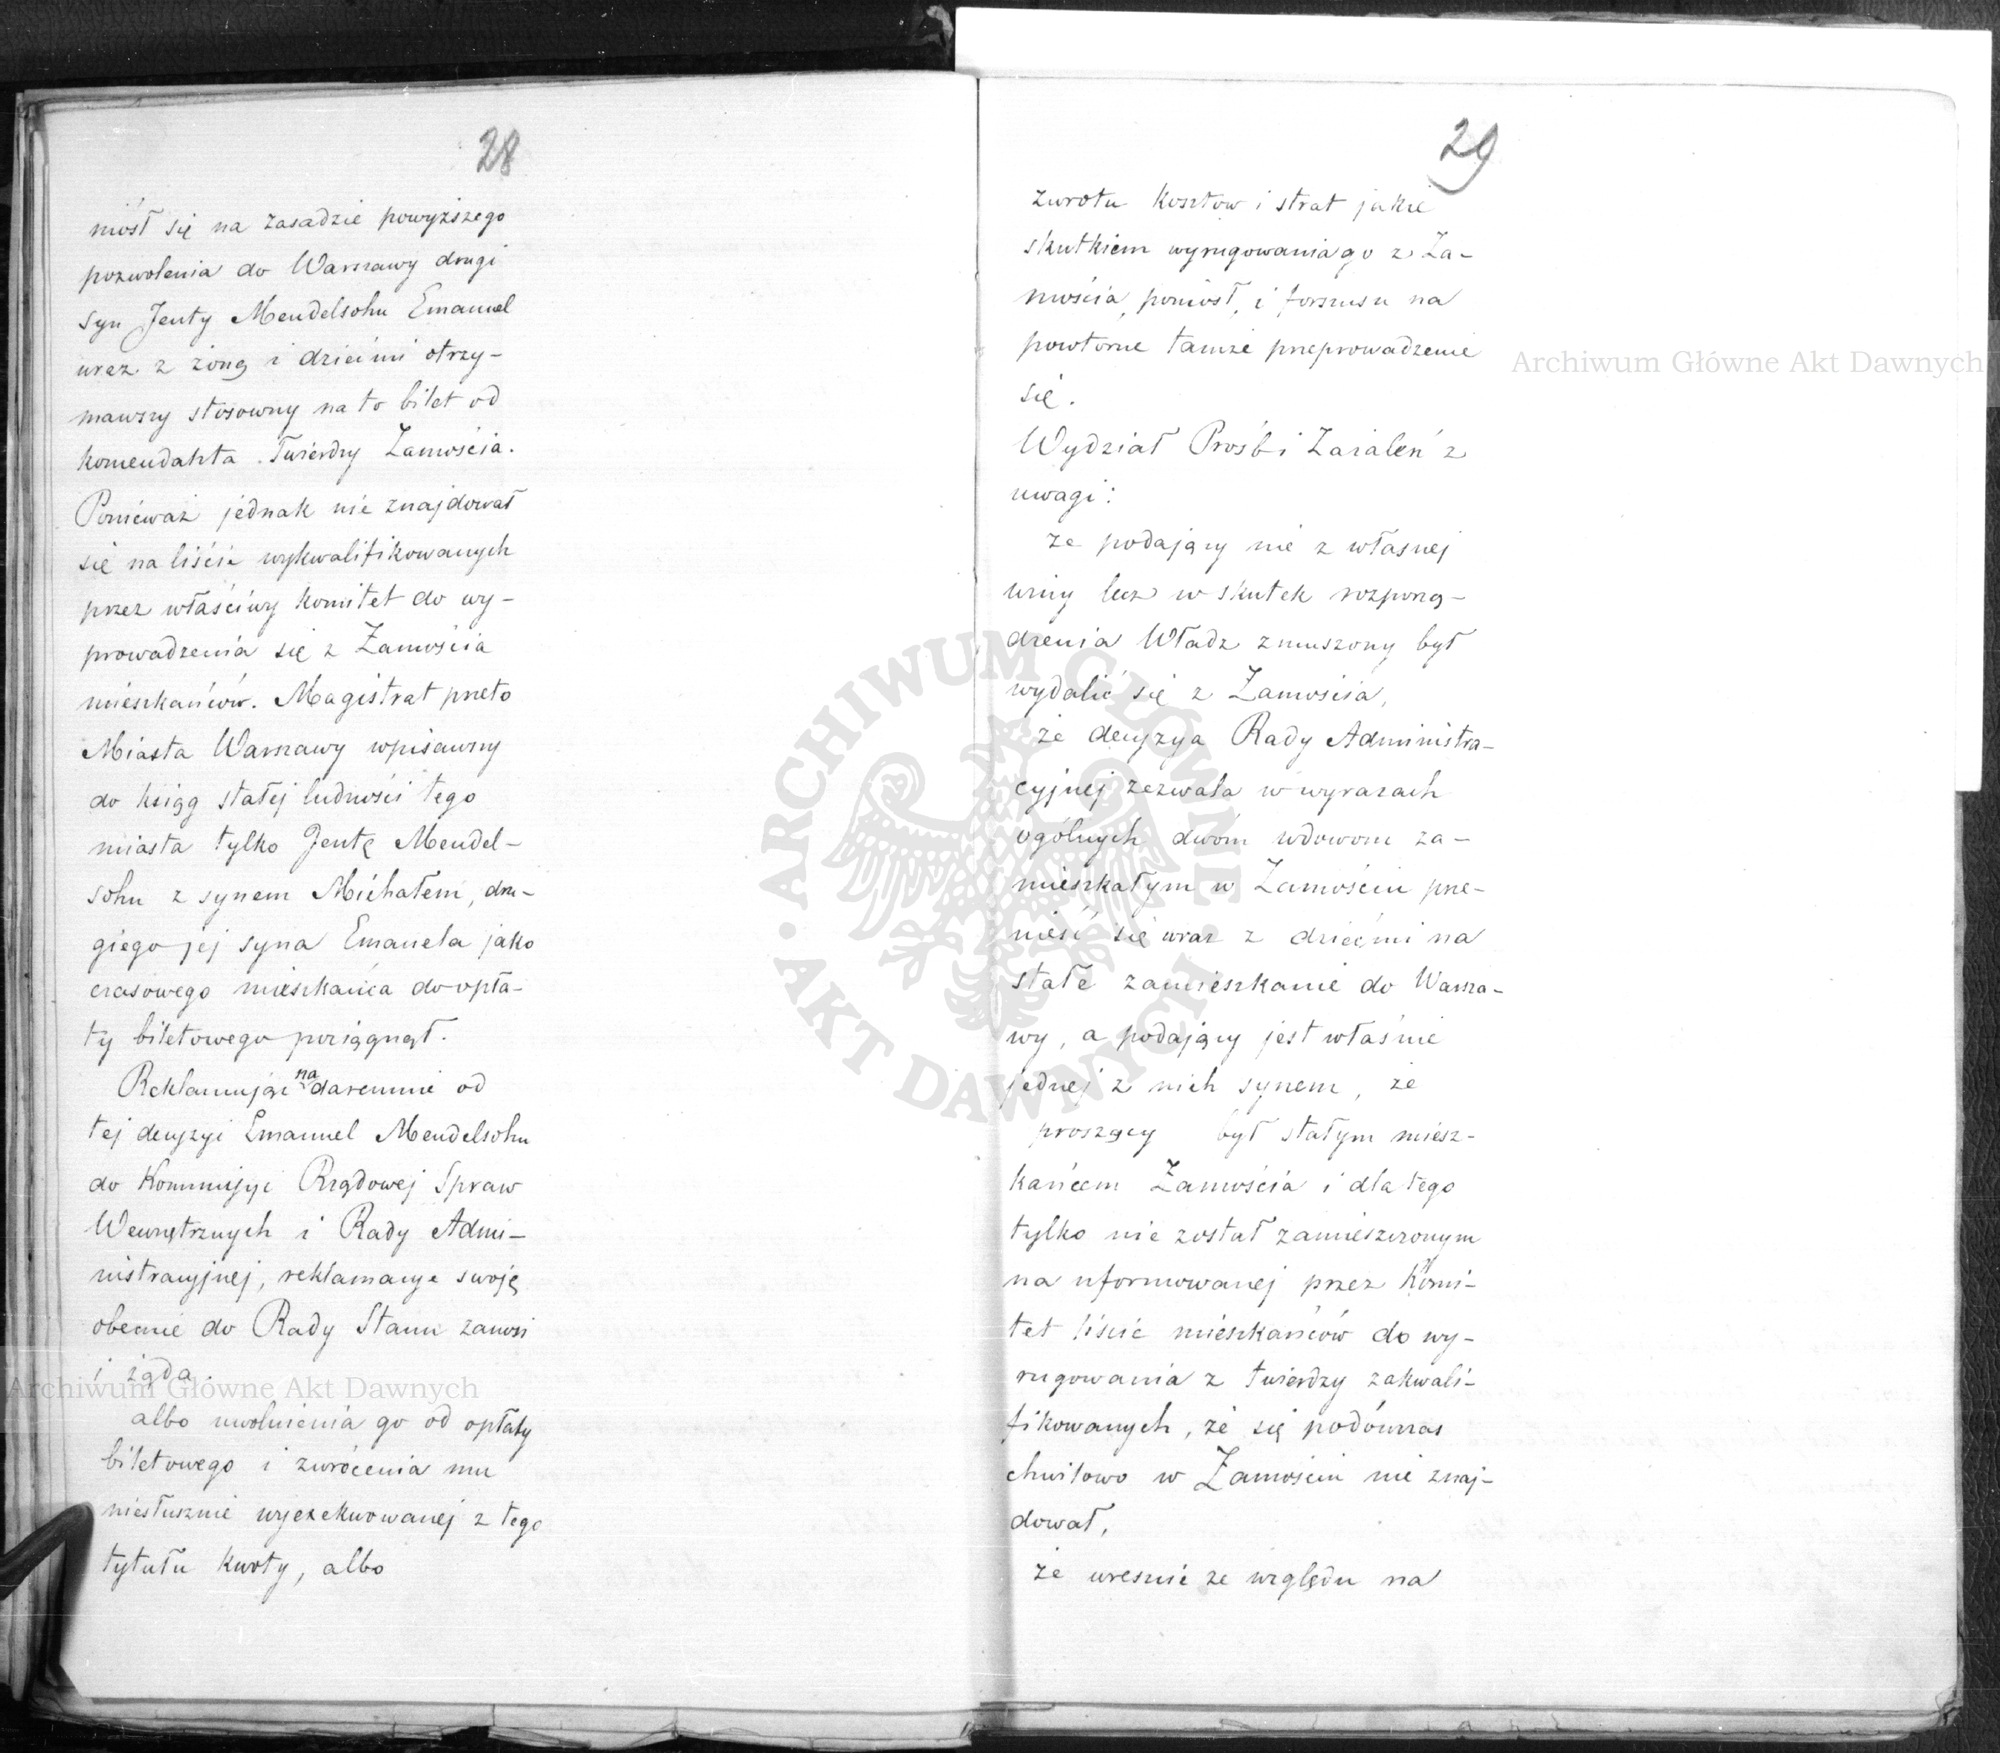 28
niósł się na zasadzie powyższego
pozwolenia do Warszawy drugi
syn Jenty Mendelsohn Emanuel
wraz z żoną i dziećmi otrzy-
mawszy stosowny na to bilet od
komendanta Twierdzy Zamościa.
Ponieważ jednak nie znajdował
się na liście wykwalifikowanych
przez właściwy komitet do wy-
prowadzenia się z Zamościa
mieszkańców. Magistrat przeto
Miasta Warszawy wpisawszy
do ksiąg stałej ludności tego
miasta tylko Jentę Mendel-
sohn z synem Michałem, dru-
giego jej syna Emanuela jako
czasowego mieszkańca do opła-
ty biletowego pociągnął.
Reklamując nadaremnie od
tej decyzyi Emanuel Mendelsohn
do Kommisyi Rządowej Spraw
Wewnętrznych i Rady Admi-
nistracyjnej, reklamacye swoję
obecnie do Rady Stanu zanosi
i żąda.
albo uwolnienia go od opłaty
biletowego i zwrócenia mu
niesłusznie wyexekwowanej z tego
tytułu kwoty, albo
29
zwrotu kosztów i strat jakie
skutkiem wyrugowania go z Za-
mościa, poniósł, i forszusu na
powtórne tamże przeprowadzenie
się.
Wydział Prośb i Zażaleń z
uwagi:
że podający nie z własnej
winy lecz w skutek rozporzą-
dzenia Władz zmuszony był
wydalić się z Zamościa,
że decyzya Rady Administra-
cyjnej zezwala w wyrazach
ogólnych dwóm wdowom za-
mieszkałym w Zamościu prze-
nieść się wraz z dziećmi na
stałe zamieszkanie do Warsza-
wy, a podający jest właśnie
jednej z nich synem, że
proszący był stałym miesz-
kańcem Zamościa i dla tego
tylko nie został zamieszczonym
na uformowanej przez Komi-
tet liście mieszkańców do wy-
rugowania z twierdzy zakwali-
fikowanych, że się podówczas
chwilowo w Zamościu nie znaj-
dował,
że wreszcie ze względu na
Archiwum Główne Akt Dawnych
Archiwum Główne Akt Dawnych
ARCHIWUM GŁÓWNE
AKT DAWNYCH